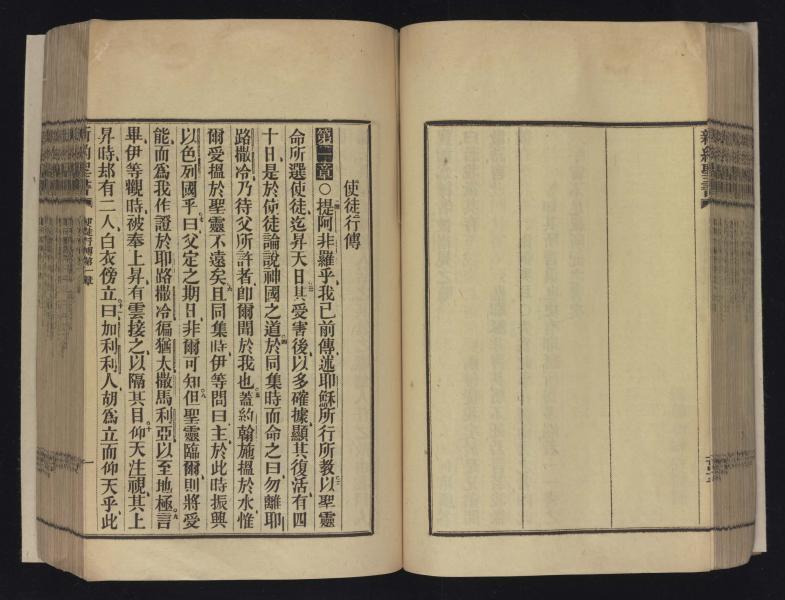 新約聖書
使徒行傳
第一章○提阿非羅乎我已前傳述耶穌所行所教以聖靈
命所選使徒迄昇天日其受害後以多確據顯其復活有四
十日是於使徒論說神國之道於同集時而命之曰勿離耶
路撒冷乃待父所許者卽爾聞於我也蓋約翰施搵於水惟
爾受搵於聖靈不遠矣且同集時伊等問曰主於此時振興
以色列國乎曰父定之期日非爾可知但聖靈臨爾則將受
能而爲我作證於耶路撒冷徧猶太撒馬利亞以至地極言
畢伊等觀時被奉上昇有雲接之以隔其目仰天注視其上
昇時却有二人白衣傍立曰加利利人胡爲立而仰天乎此
新約聖書 使徒行傳第一章 一